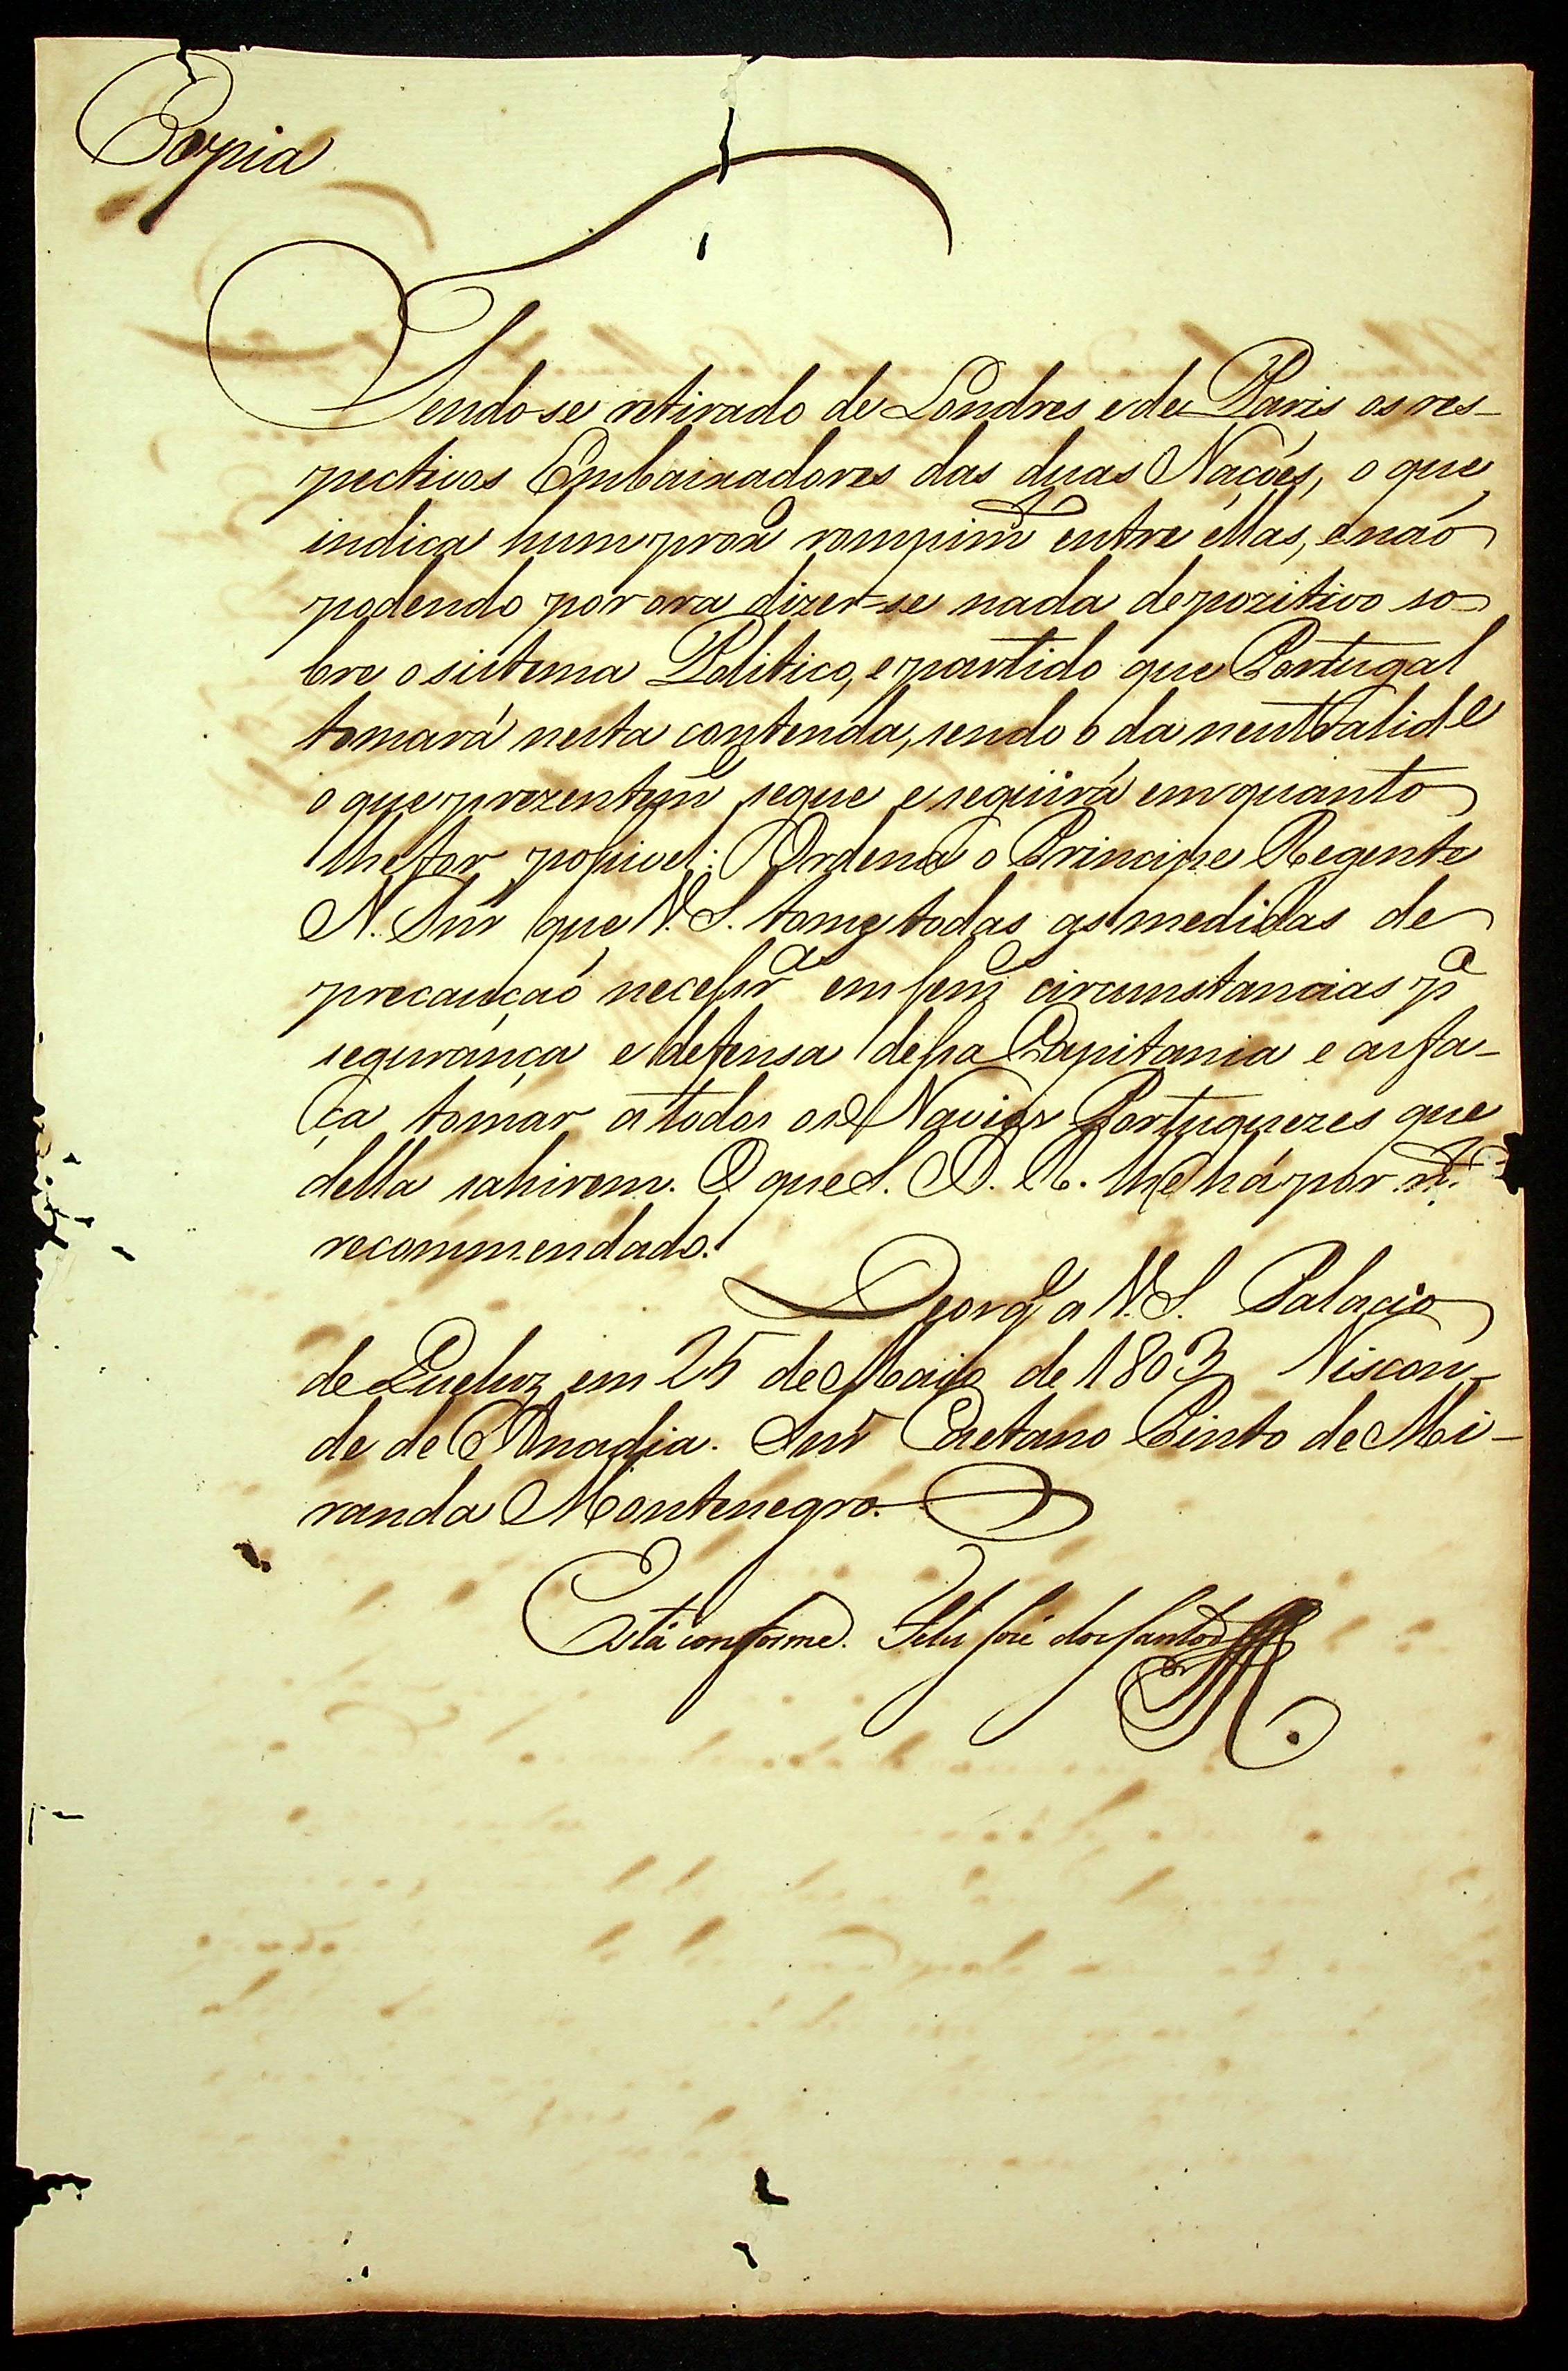 Copia
Tendo-se retirado de Londres e de Paris os res-
pectivos Embaixadores das duas Naçoẽs, o que
indica hum prox.º rompim.to entre ellas, e naõ
podendo por ora dizer-se nada de pozitivo so-
bre o sistema Politico, e partido que Portugal
tomará nesta contenda, sendo o da neutralid.e
o que prezentem.e segue e seguirá emquanto
lhe for possivel: Ordena o Principe Regente
N. Snr que V. S. tome todas as medidas de
precauçaõ necessr.as em sem.es circunstancias p.a
segurança e defensa dessa Capitania e as fa-
ça tomar a todos os Navios Portuguezes que
della sahirem. O que S. A. R. lhe há por m.to
recommendado.
D.s g.e a V. S. Palacio
de Queluz em 25 de Maio de 1803 Viscon-
de de Anadia. Snr Caetano Pinto de Mi-
randa Montenegro.
Está conforme. José dos Santos